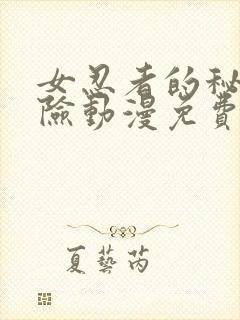 女忍者的秘
險動漫免費
夏藝芮